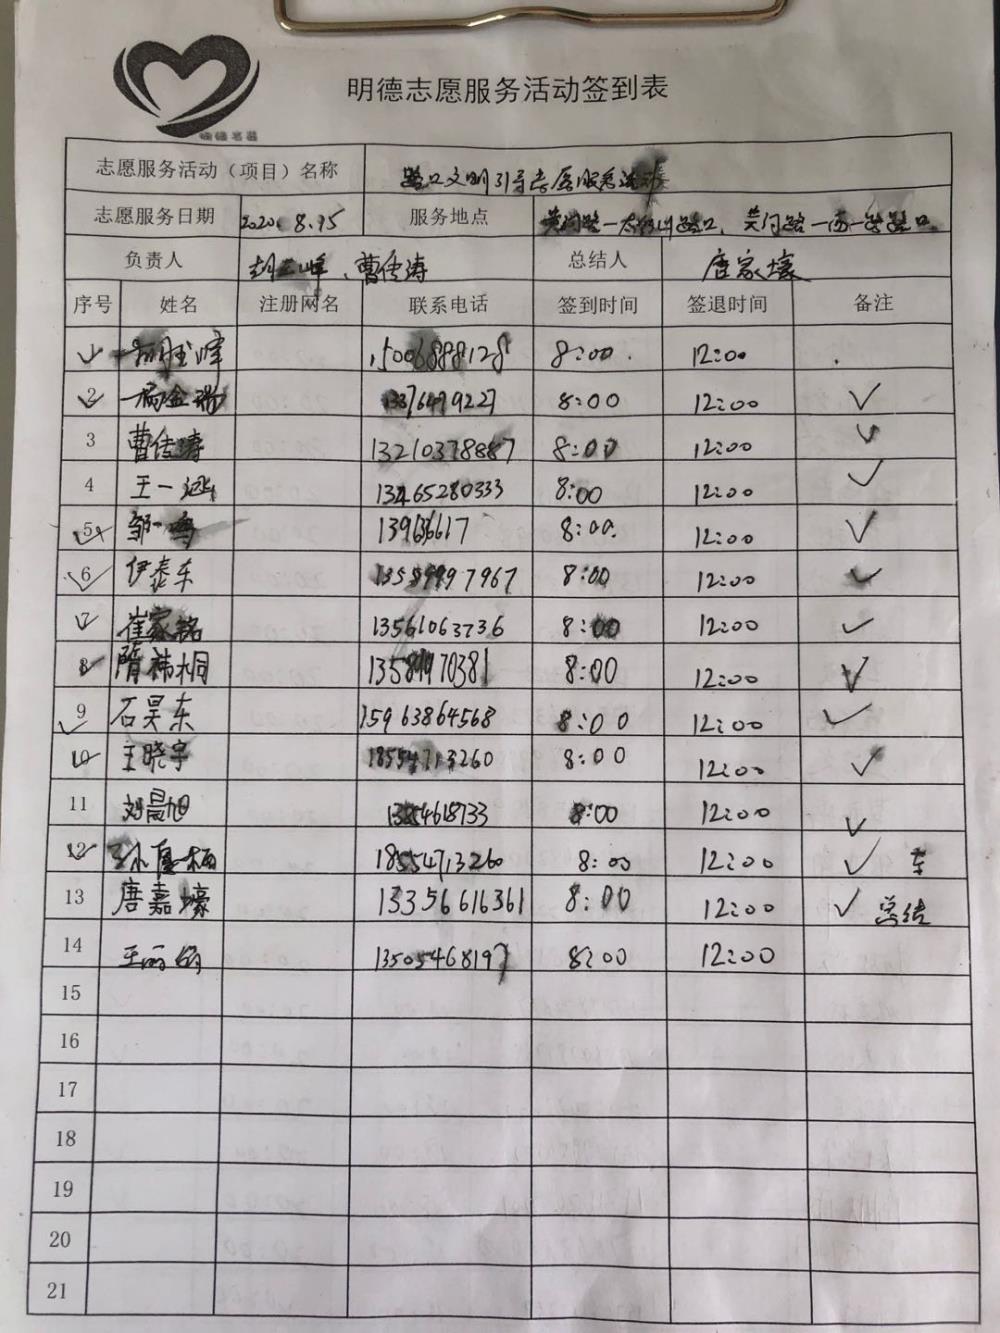 明德志愿服务活动签到表
志愿服务活动（项目）名称 路口文明引导志愿服务活动
志愿服务日期 2020. 8.15 服务地点
负责人 曹传涛 总结人 唐家壕
序号 姓名 注册网名 联系电话 签到时间 签退时间 备注
1 15006888128 8:00 12:00
2 杨金瑞 8:00 12:00 ✓
3 曹传涛 13210378887 8:00 12:00 ✓
4 王一涵 13465280333 8:00 12:00 ✓
5 邹一鸣 8:00 12:00 ✓
6 伊泰东 8:00 12:00 ✓
7 崔家铭 13561063736 8:00 12:00 ✓
8 隋祎桐 8:00 12:00 ✓
9 石昊东 15963864568 8:00 12:00 ✓
10 王晓宇 18554713260 8:00 12:00 ✓
11 刘晨旭 8:00 12:00 ✓
12 18554713260 8:00 12:00 ✓ 车
13 唐嘉壕 13356616361 8:00 12:00 ✓ 总结
14 13505468197 8:00 12:00
15
16
17
18
19
20
21